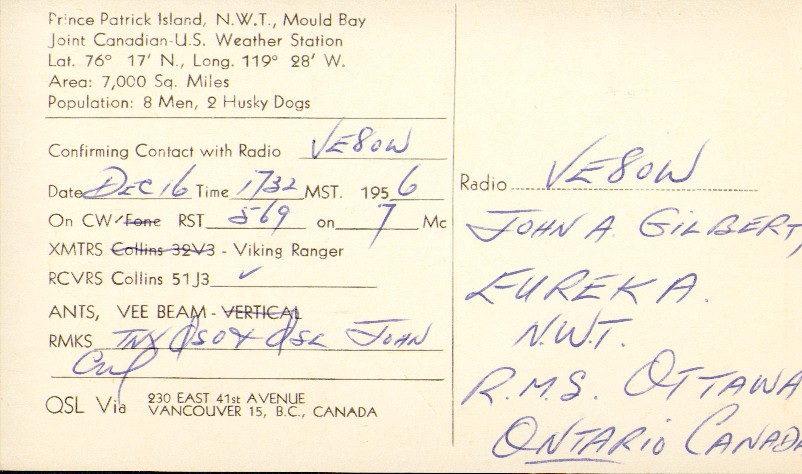 Prince Patrick Island, N.W.T., Mould Bay
Joint Canadian-U.S. Weather Station
Lat. 76° 17' N., Long. 119° 28' W.
Area: 7,000 Sq. Miles
Population: 8 Men, 2 Husky Dogs
Confirming Contact with Radio VE8OW
Date DEC 16 Time 1732 MST. 1956
On CW/Fone RST 569 on 7 Mc
XMTRS Collins 32V3 - Viking Ranger
RCVRS Collins 51J3 ✓
ANTS, VEE BEAM - VERTICAL
RMKS TNX QSO & QSL JOHN
CUL
QSL Via 230 EAST 41st AVENUE
VANCOUVER 15, B.C., CANADA
Radio VE8OW
JOHN A. GILBERT,
EUREKA.
N.W.T.
R.M.S. OTTAWA
ONTARIO CANADA